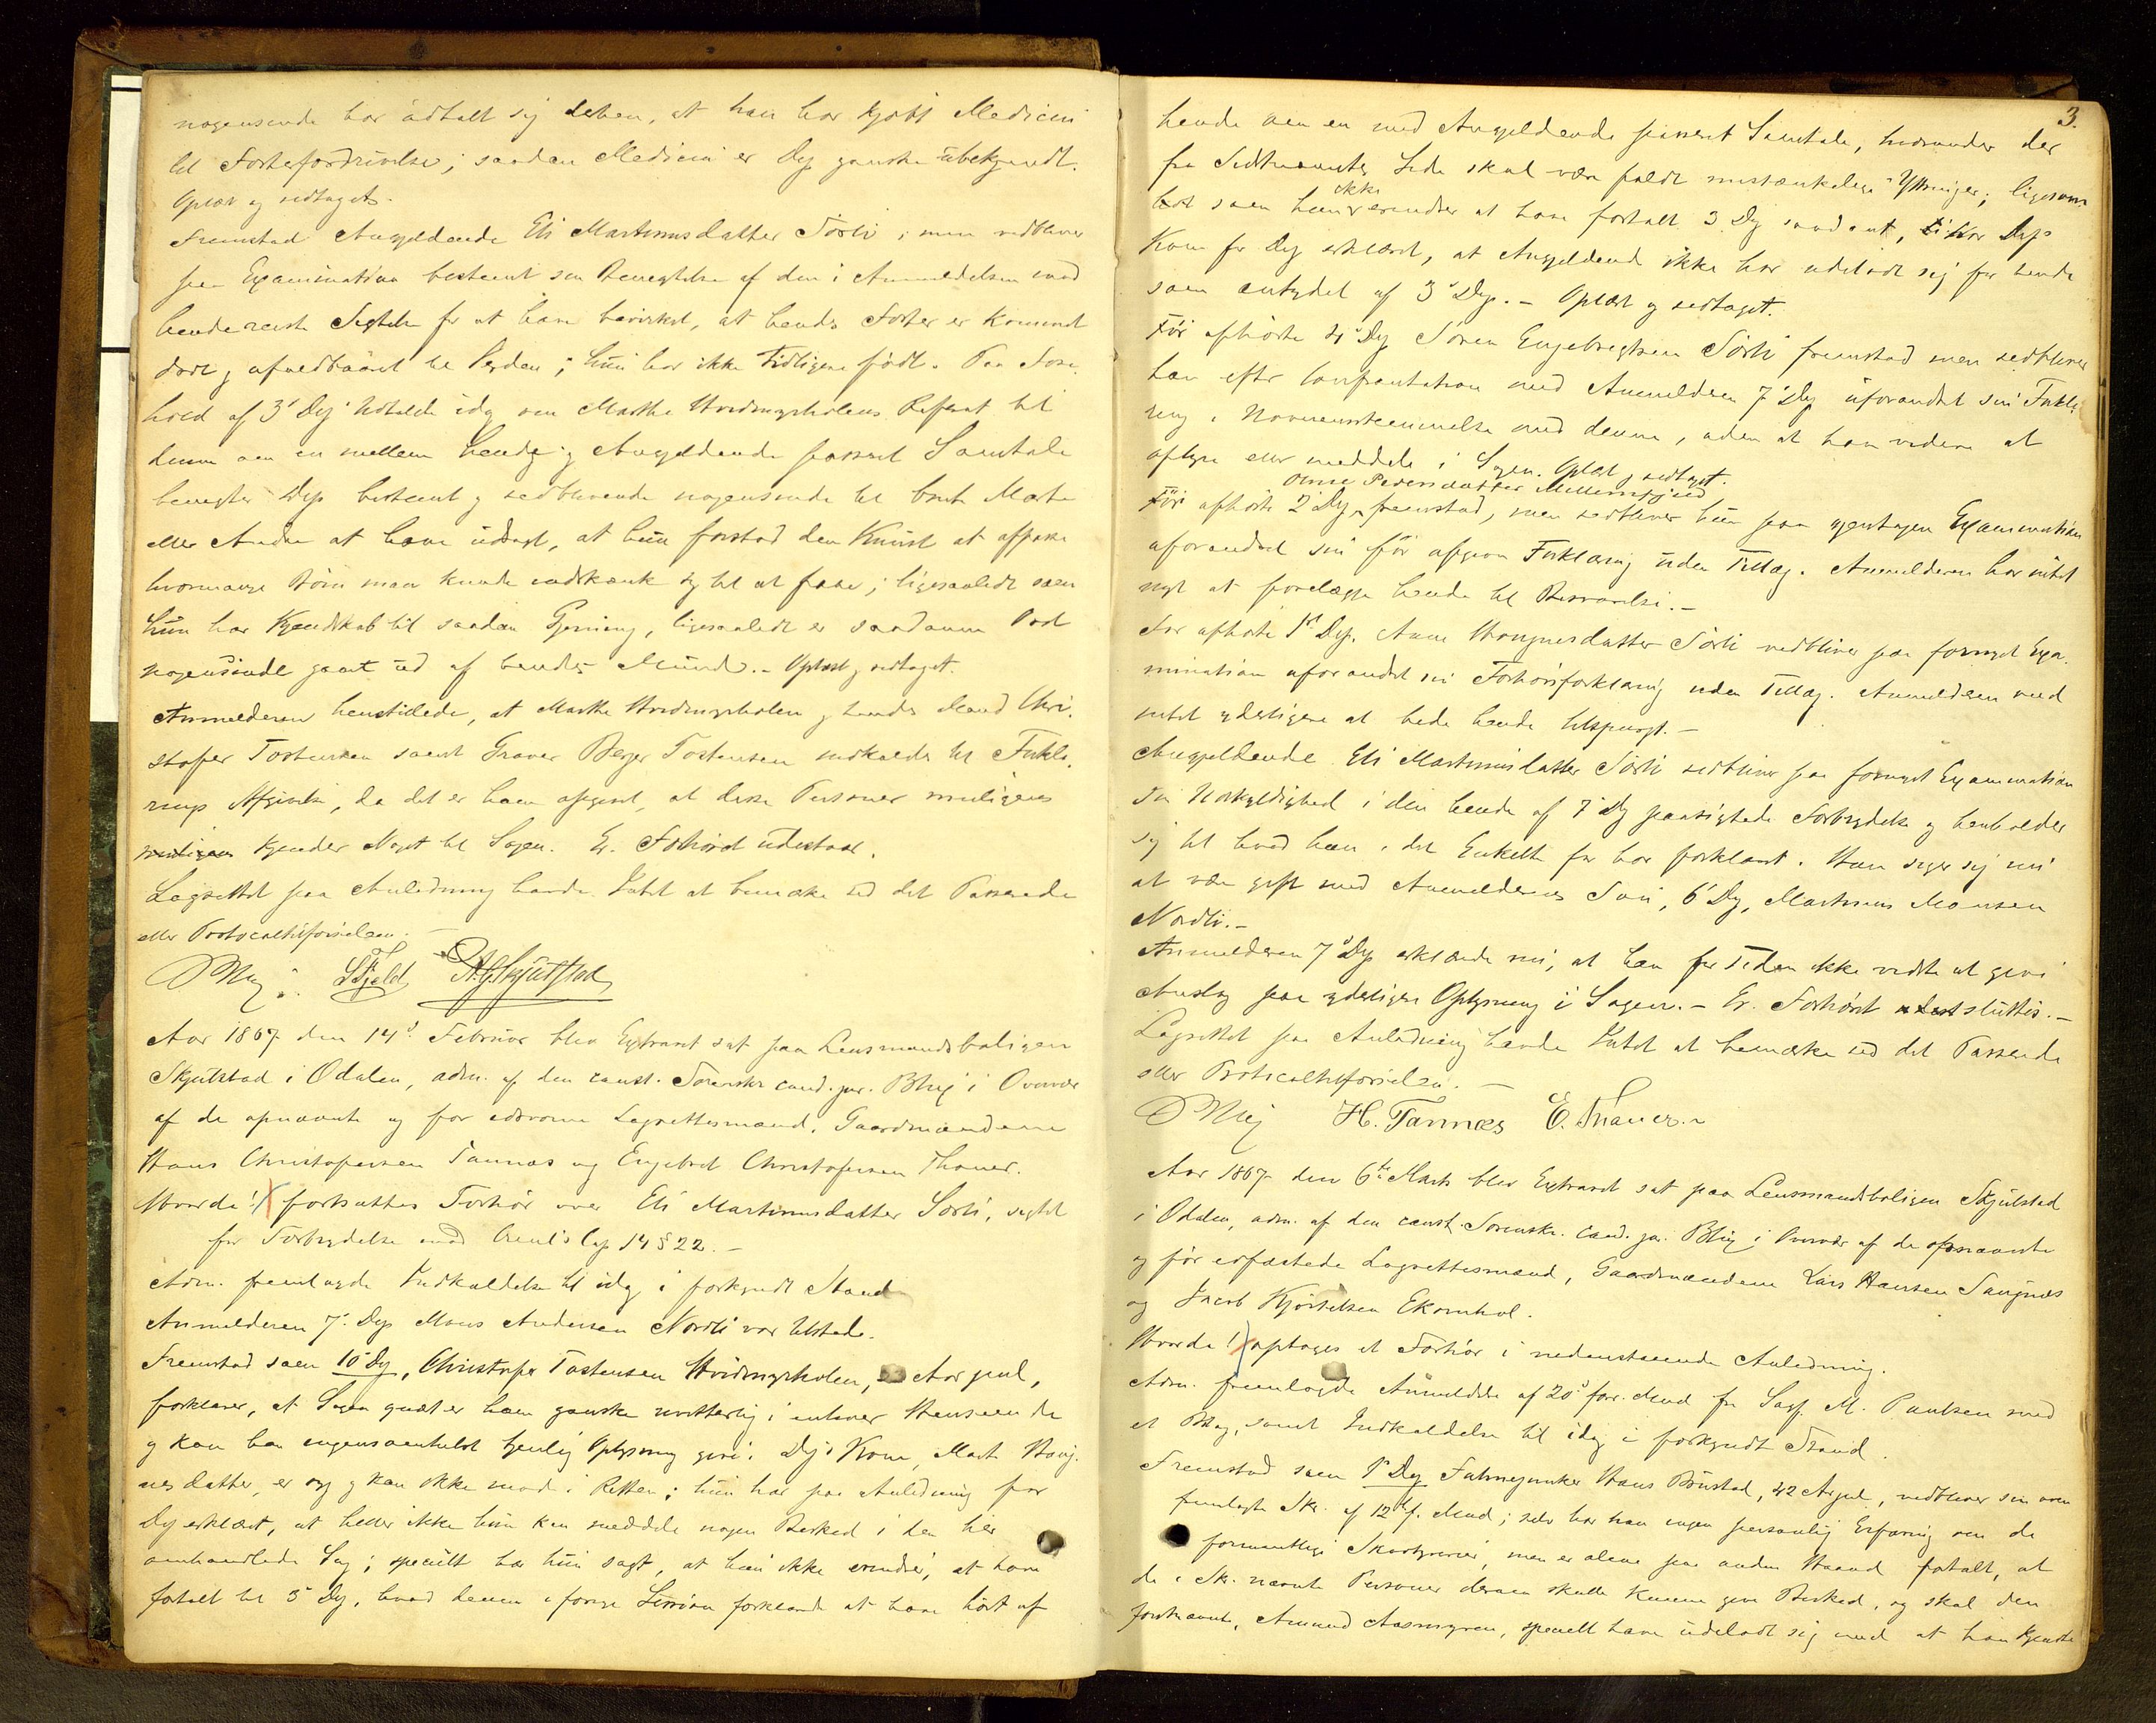 nogensinde har udtalt sig derhen, at han har kjøbt Medicin
til Fosterfordrivelse; saadan Medicin er Dep ganske ubekjendt.
Oplæst og vedtaget.
Fremstod Angjeldende Eli Martinusdatter Sörli; men vedbliver
paa Examination bestemt sin Benegtelse af den i Anmeldelsen mod
hende reiste Sigtelse for at have bevirket, at hendes Foster er kommet
dødt og ufuldbaaret til Verden; hun har ikke tidligere födt. Paa Fore-
hold af 3' Dep' Udtalelse idag om Marthe Hvidmyrholens Referat til
denne om en mellem hende og Angjeldende passeret Samtale
benegter Dep bestemt og vedblivende nogensinde til bemte Marte
eller Andre at have udsagt, at hun forstod den Kunst at afpasse
hvormange Börn man kunde indskrænke sig til at faae; ligesaalidt som
hun har Kjendskab til saadan Gjerning, ligesaalidt er saadanne Ord
nogensinde gaaet ud af hendes Mund. - Oplæst og vedtaget.
Anmelderen henstillede, at Marthe Hvidmyrholen og hendes Mand Chri-
stofer Tostensen samt Graver Berger Tostensen indkaldes til Forkla-
rings Afgivelse, da det er ham opgivet, at disse Personer muligens
muligens kjender Noget til Sagen. Er. Forhöret udestaar.
Lagrettet paa Anledning havde Intet at bemærke ved det Passerede
eller Protocoltilförselen. -
Blix. LFjeld A.G.Skjutstad
Aar 1867 den 14de Februar blev Extraret sat paa Lensmandsboligen
Skjutstad i Odalen, adm. af den const. Sorenskr. cand. jur. Blix i Overvær
af de opnævnte og för edsvorne Lagrettesmænd, Gaardmændene
Hans Christophersen Tannæs og Engebret Christophersen Thoner.
Hvorda 1) fortsattes Forhör over Eli Martinusdatter Sörli, sigtet
for Forbrydelse mod Crml's Cap 14 § 22. -
Adm. fremlagde Indkaldelse til idag i forkyndt Stand
Anmelderen 7de Dep Mons Andersen Nordli var tilstede.
Fremstod som 10' Dep, Christopher Tostensen Hvidmyrholen, Aar gml,
forklarer, at Sagen quæst. er ham ganske uvitterlig i enhver Henseende
og kan han ingensomhelst tjenlig Oplysning give. Dep's Kone, Marte Haag-
nesdatter, er syg og kan ikke möde i Retten; hun har paa Anledning for
Dep erklæret, at heller ikke hun kan meddele nogen Besked i den her
omhandlede Sag; specielt har hun sagt, at hun ikke erindrer, at have
fortalt til 3' Dep, hvad denne i forrige Session forklarede at have hört af
3.
hende om en med Angjeldende passeret Samtale, hvorunder der
fra Sidstnævntes Side skal være faldt mistænkelige Yttringer; ligesom
ikke
som hun erindrer at have fortalt 3 Dep saadant, har Dep's
Kone for Dep erklæret, at Angjeldende ikke har udeladt sig for hende
som antydet af 3' Dep. - Oplæst og vedtaget.
För afhörte 4' Dep Sören Engebregtsen Sörli fremstod men vedbliver
han efter Confrontation med Anmelderen 7' Dep uforandret sin Forkla-
ring i Uoverensstemmelse med denne, uden at han videre at
oplyse eller meddele i Sagen. Oplæst og vedtaget.
Anne Pedersdatter Mellemsjøeid
För afhörte 2' Dep, fremstod, men vedbliver hun paa gjentagen Examination
uforandret sin för afgivne Forklaring uden Tillæg. Anmelderen har intet
nyt at forelægge hende til Besvarelse. -
För afhörte 1ste Dep. Anne Haagnesdatter Sörli vedbliver paa fornyet Exa-
mination uforandret sin Forhörsforklaring uden Tillæg. Anmelderen veed
intet yderligere at bede hende tilspurgt. -
Angjeldende Eli Martinusdatter Sörli vedbliver paa fornyet Examination
sin Uskyldighed i den hende af 7' Dep paasigtede Forbrydelse og henholder
sig til hvad hun i det Enkelte för har forklaret. Hun siger sig nu
at være gift med Anmelderens Sön, 6' Dep, Martinus Monsen
Nordli. -
Anmelderen 7' Dep erklærede nu, at han for Tiden ikke vidste at give
Anslag paa yderligere Oplysning i Sagen. - Er. Forhöret sluttes. -
Lagrettet paa Anledning havde Intet at bemærke ved det Passerede
eller Protocoltilförselen. -
Blix H. Tannæs E. Thaner
Aar 1867 den 6te Marts blev Extraret sat paa Lensmandsboligen Skjulstad
i Odalen, adm. af den const. Sorenskr. cand. jur. Blix i Overvær af de opnævnte
og för edfæstede Lagrettesmænd, Gaardmændene Lars Hansen Saugnæs
og Jacob Kjöstelsen Ekornhol.
Hvorda 1) optoges et Forhör i nedenstaaende Anledning.
Adm. fremlagde Anmeldelse af 20de for. Mnd fra Sagf. M. Paulsen med
et Bilag, samt Indkaldelse til idag i forkyndt Stand.
Fremstod som 1' Dep Fahnejunker Hans Brustad, 42 Aar gml, vedbliver sin
fremlagte Skr. af 12te f. Mnd; selv har han ingen personlig Erfaring om de
formentlige Skovtyverier, men er alene paa anden Haand fortalt, at
de i Skr. nævnte Personer derom skulle kunne give Besked, og skal den
förstnævnte, Amund Aasmyren, specielt have udeladt sig med at han kjendte